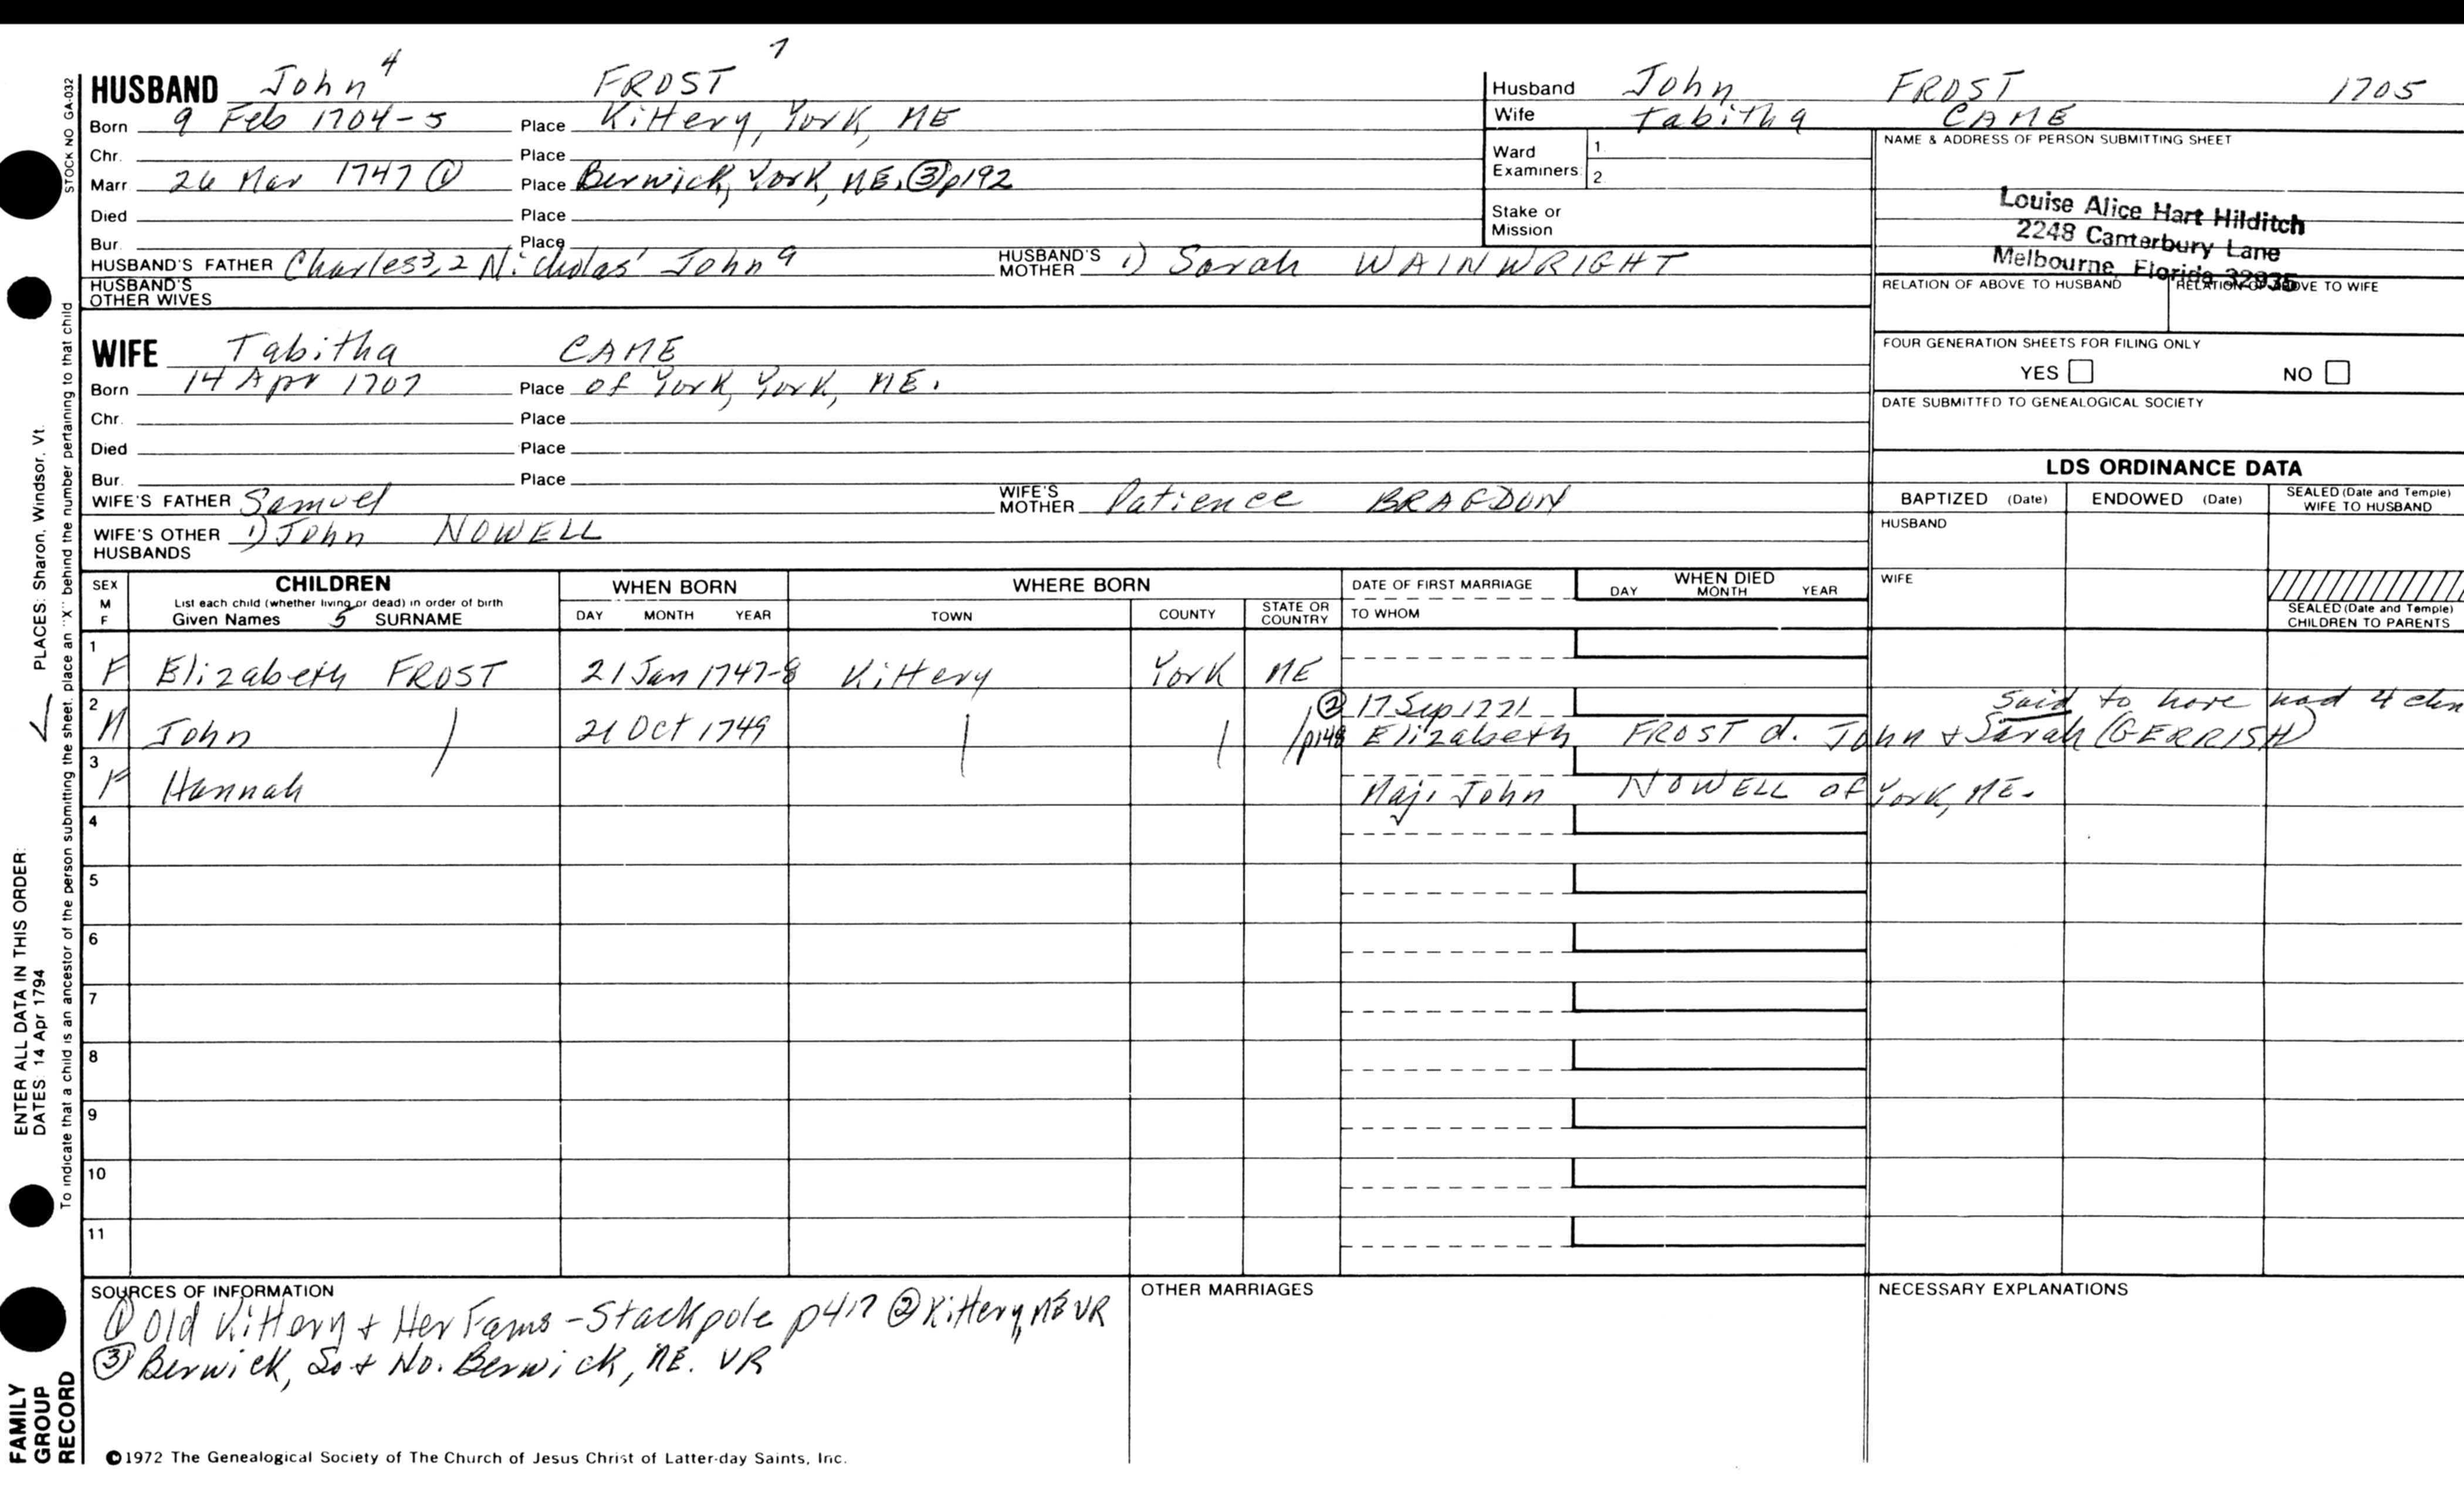 7
HUSBAND John 4 FROST
Born 9 Feb 1704-5 Place Kittery, York, ME
Chr. Place
Marr. 26 Mar 1747 ① Place Berwick, York, ME, ③ p192
Died Place
Bur. Place
HUSBAND'S FATHER Charles 3, 2 Nicholas' John 9 HUSBAND'S MOTHER 1) Sarah WAINWRIGHT
HUSBAND'S OTHER WIVES
WIFE Tabitha CAME
Born 14 Apr 1707 Place of York, York, ME.
Chr. Place
Died Place
Bur. Place
WIFE'S FATHER Samuel WIFE'S MOTHER Patience BRAGDON
WIFE'S OTHER HUSBANDS 1) John NOWELL
Husband John FROST 1705
Wife Tabitha CAME
Ward Examiners 1. 2.
Stake or Mission
NAME & ADDRESS OF PERSON SUBMITTING SHEET
Louise Alice Hart Hilditch
2248 Canterbury Lane
Melbourne, Florida 32935
RELATION OF ABOVE TO HUSBAND RELATION OF ABOVE TO WIFE
FOUR GENERATION SHEETS FOR FILING ONLY
YES NO
DATE SUBMITTED TO GENEALOGICAL SOCIETY
LDS ORDINANCE DATA
BAPTIZED (Date) ENDOWED (Date) SEALED (Date and Temple) WIFE TO HUSBAND
HUSBAND
WIFE
SEALED (Date and Temple) CHILDREN TO PARENTS
SEX M F CHILDREN WHEN BORN WHERE BORN DATE OF FIRST MARRIAGE WHEN DIED
List each child (whether living or dead) in order of birth
Given Names 5 SURNAME DAY MONTH YEAR TOWN COUNTY STATE OR COUNTRY TO WHOM DAY MONTH YEAR
1 F Elizabeth FROST 21 Jan 1747-8 Kittery York ME
② 17 Sep 1771 Said to have had 4 chn
2 M John 26 Oct 1749 p148 Elizabeth FROST d. John & Sarah (GERRISH)
3 F Hannah Maj. John NOWELL of York, ME.
4
5
6
7
8
9
10
11
SOURCES OF INFORMATION
① Old Kittery & Her Fams - Stackpole p417 ② Kittery, ME VR
③ Berwick, So & No. Berwick, ME. VR
OTHER MARRIAGES
NECESSARY EXPLANATIONS
©1972 The Genealogical Society of The Church of Jesus Christ of Latter-day Saints, Inc.
STOCK NO GA-032
To indicate that a child is an ancestor of the person submitting the sheet, place an "X" behind the number pertaining to that child
ENTER ALL DATA IN THIS ORDER:
DATES: 14 Apr 1794 PLACES: Sharon, Windsor, Vt.
FAMILY
GROUP
RECORD